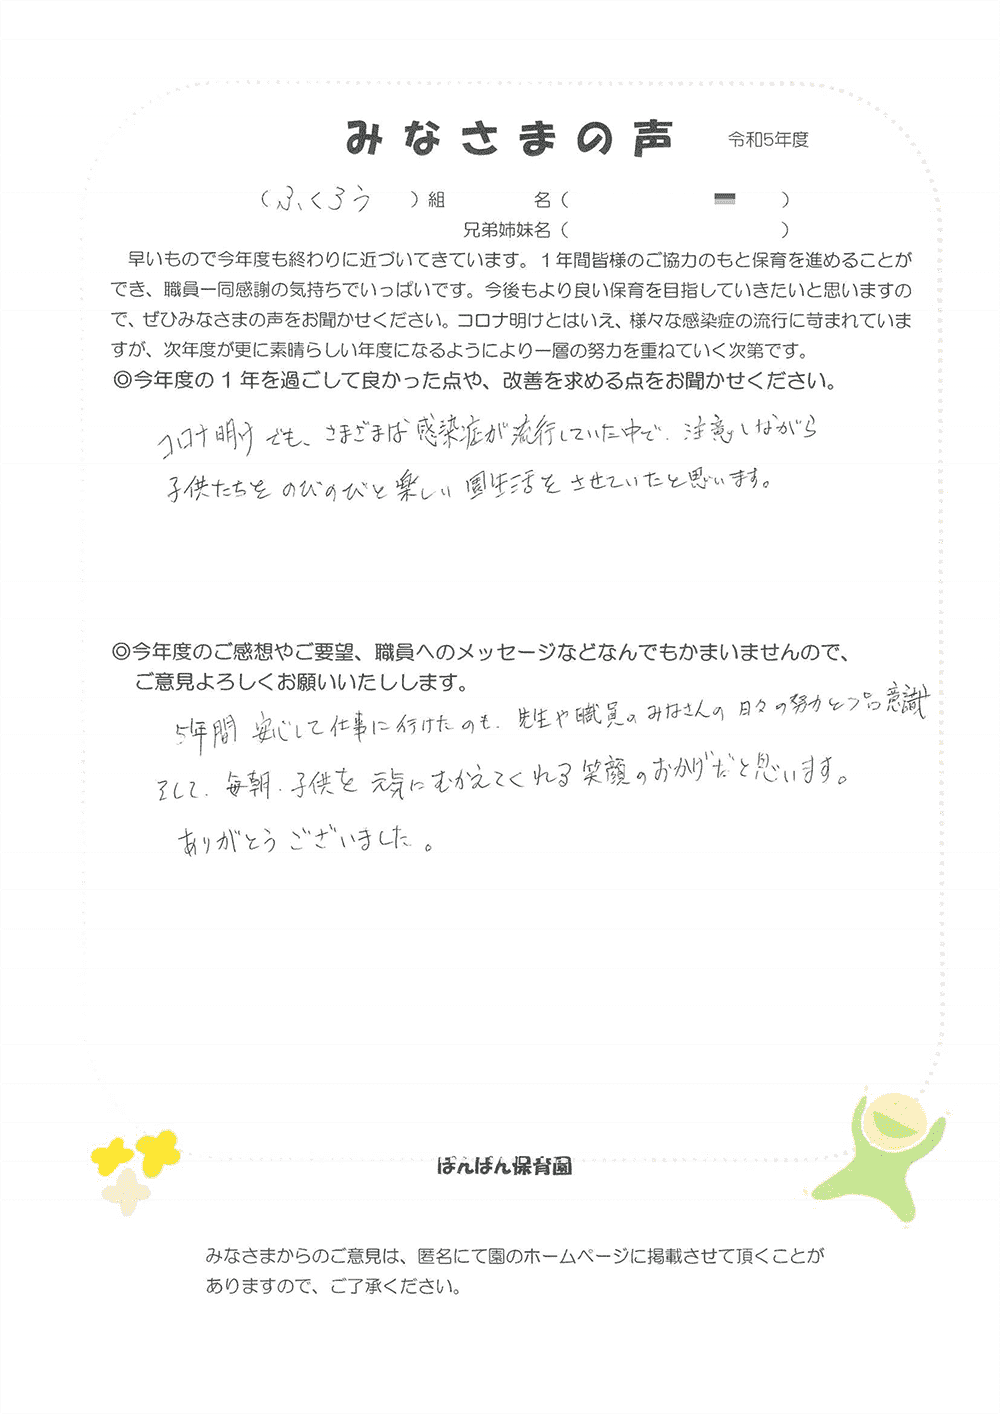 みなさまの声 令和5年度
（ふくろう）組 名（ ）
兄弟姉妹名（ ）
早いもので今年度も終わりに近づいてきています。1年間皆様のご協力のもと保育を進めることが
でき、職員一同感謝の気持ちでいっぱいです。今後もより良い保育を目指していきたいと思いますの
で、ぜひみなさまの声をお聞かせください。コロナ明けとはいえ、様々な感染症の流行に苛まれていま
すが、次年度が更に素晴らしい年度になるようにより一層の努力を重ねていく次第です。
◎今年度の1年を過ごして良かった点や、改善を求める点をお聞かせください。
コロナ明けでも、さまざまな感染症が流行していた中で、注意しながら
子供たちをのびのびと楽しい園生活をさせていたと思います。
◎今年度のご感想やご要望、職員へのメッセージなどなんでもかまいませんので、
ご意見よろしくお願いいたしします。
5年間 安心して仕事に行けたのも、先生や職員のみなさんの日々の努力と意識
そして、毎朝、子供を元気にむかえてくれる笑顔のおかげだと思います。
ありがとうございました。
ぽんぽん保育園
みなさまからのご意見は、匿名にて園のホームページに掲載させて頂くことが
ありますので、ご了承ください。